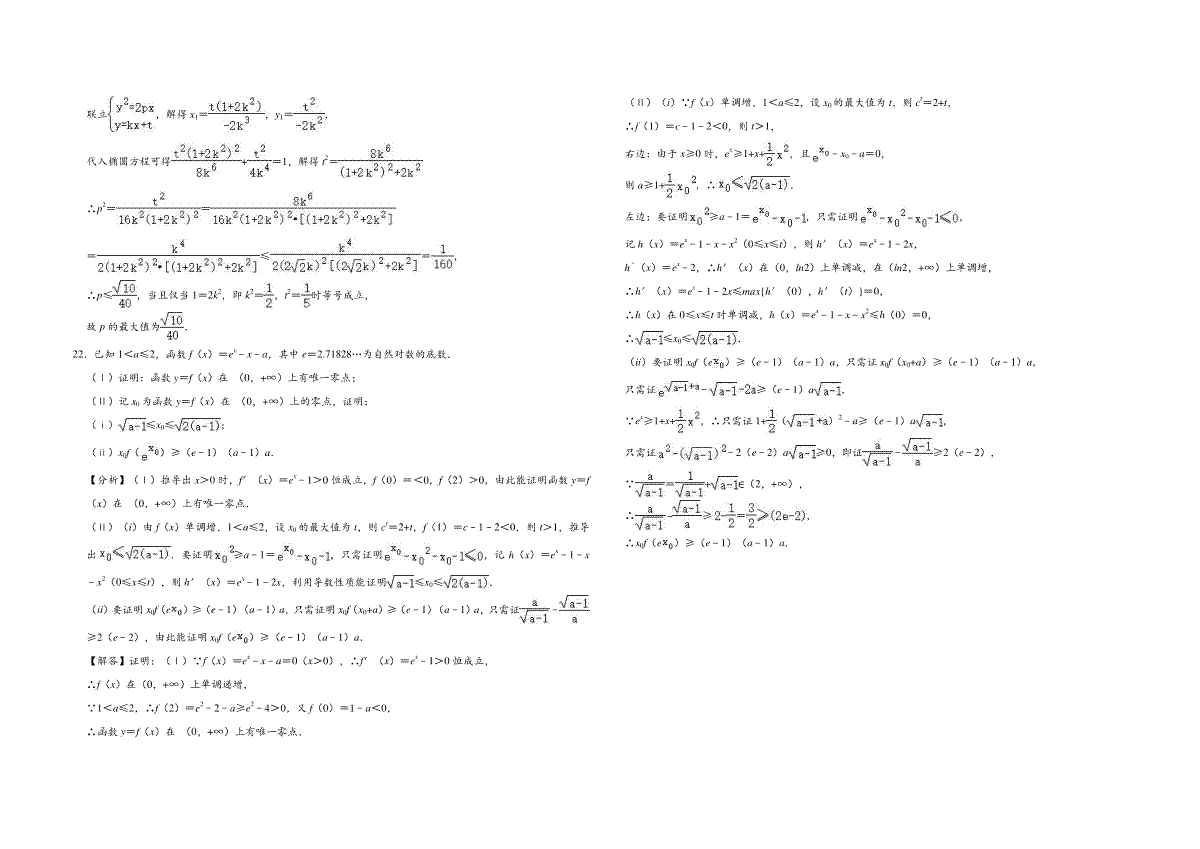 联立{y²=2px, y=kx+t，解得 x₁=t(1+2k²)/(-2k³)，y₁=t²/(-2k²)，
代入椭圆方程可得t²(1+2k²)²/(8k⁶)+t²/(4k⁴)=1，解得 t²=8k⁶/((1+2k²)²+2k²)
∴p²=t²/(16k²(1+2k²)²)=8k⁶/(16k²(1+2k²)²•[(1+2k²)²+2k²])
=k⁴/(2(1+2k²)²•[(1+2k²)²+2k²])≤k⁴/(2(2√2k)²[(2√2k)²+2k²])=1/160，
∴p≤√10/40，当且仅当 1=2k²，即 k²=1/2，t²=1/5时等号成立，
故 p 的最大值为√10/40．
22．已知 1<a≤2，函数 f（x）=eˣ﹣x﹣a，其中 e=2.71828…为自然对数的底数．
（Ⅰ）证明：函数 y=f（x）在 （0，+∞）上有唯一零点；
（Ⅱ）记 x₀为函数 y=f（x）在 （0，+∞）上的零点，证明：
（ⅰ）√(a-1)≤x₀≤√(2(a-1))；
（ⅱ）x₀f（e^x₀）≥（e﹣1）（a﹣1）a．
【分析】（Ⅰ）推导出 x>0 时，f′（x）=eˣ﹣1>0 恒成立，f（0）=<0，f（2）>0，由此能证明函数 y=f
（x）在 （0，+∞）上有唯一零点．
（Ⅱ）（i）由 f（x）单调增，1<a≤2，设 x₀的最大值为 t，则 cᵗ=2+t，f（1）=c﹣1﹣2<0，则 t>1，推导
出x₀≤√(2(a-1))．要证明x₀²≥a﹣1=e^x₀-x₀-1，只需证明e^x₀-x₀²-x₀-1≤0，记 h（x）=eˣ﹣1﹣x
﹣x²（0≤x≤t），则 h′（x）=eˣ﹣1﹣2x，利用导数性质能证明√(a-1)≤x₀≤√(2(a-1))．
（ii）要证明 x₀f（e^x₀）≥（e﹣1）（a﹣1）a，只需证明 x₀f（x₀+a）≥（e﹣1）（a﹣1）a，只需证a/√(a-1)-√(a-1)/a
≥2（e﹣2），由此能证明 x₀f（e^x₀）≥（e﹣1）（a﹣1）a．
【解答】证明：（Ⅰ）∵f（x）=eˣ﹣x﹣a=0（x>0），∴f′（x）=eˣ﹣1>0 恒成立，
∴f（x）在（0，+∞）上单调递增，
∵1<a≤2，∴f（2）=e²﹣2﹣a≥e²﹣4>0，又 f（0）=1﹣a<0，
∴函数 y=f（x）在 （0，+∞）上有唯一零点．
（Ⅱ）（i）∵f（x）单调增，1<a≤2，设 x₀的最大值为 t，则 cᵗ=2+t，
∴f（1）=c﹣1﹣2<0，则 t>1，
右边：由于 x≥0 时，eˣ≥1+x+1/2x²，且e^x₀﹣x₀﹣a=0，
则 a≥1+1/2x₀²，∴x₀≤√(2(a-1))．
左边：要证明x₀²≥a﹣1=e^x₀-x₀-1，只需证明e^x₀-x₀²-x₀-1≤0，
记 h（x）=eˣ﹣1﹣x﹣x²（0≤x≤t），则 h′（x）=eˣ﹣1﹣2x，
h″（x）=eˣ﹣2，∴h′（x）在（0，ln2）上单调减，在（ln2，+∞）上单调增，
∴h′（x）=eˣ﹣1﹣2x≤max{h′（0），h′（t）}=0，
∴h（x）在 0≤x≤t 时单调减，h（x）=eˣ﹣1﹣x﹣x²≤h（0）=0，
∴√(a-1)≤x₀≤√(2(a-1))．
（ii）要证明 x₀f（e^x₀）≥（e﹣1）（a﹣1）a，只需证 x₀f（x₀+a）≥（e﹣1）（a﹣1）a，
只需证e^(√(a-1)+a)-√(a-1)-2a≥（e﹣1）a√(a-1)，
∵eˣ≥1+x+1/2x²，∴只需证 1+1/2（√(a-1)+a）²﹣a≥（e﹣1）a√(a-1)，
只需证a²-(√(a-1))²﹣2（e﹣2）a√(a-1)≥0，即证a/√(a-1)-√(a-1)/a≥2（e﹣2），
∵a/√(a-1)=1/√(a-1)+√(a-1)∈（2，+∞），
∴a/√(a-1)-√(a-1)/a≥2-1/2=3/2≥(2e-2)，
∴x₀f（e^x₀）≥（e﹣1）（a﹣1）a．